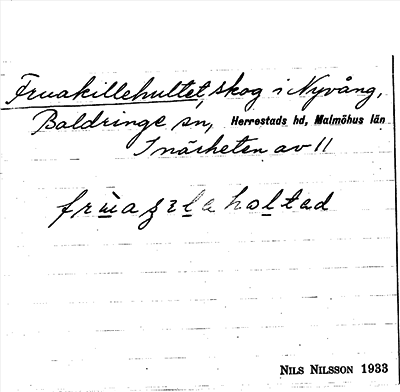 Fruakillehultet, skog i Nyvång,
Baldringe sn, Herrestads hd, Malmöhus län
I närheten av 11
NILS NILSSON 1933